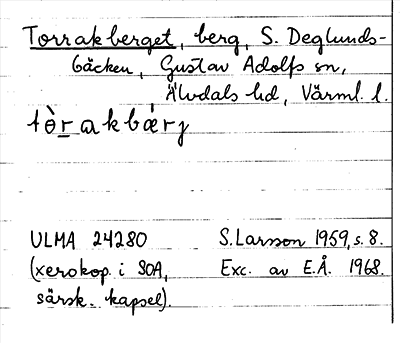 Torrakberget, berg, S. Deglunds-
bäcken, Gustav Adolfs sn,
Älvdals hd, Värml. l.
tòrakbærj
ULMA 24280 S. Larsson 1959, s. 8.
(xerokop. i SOA, Exc. av E.Å. 1968.
särsk. kapsel).